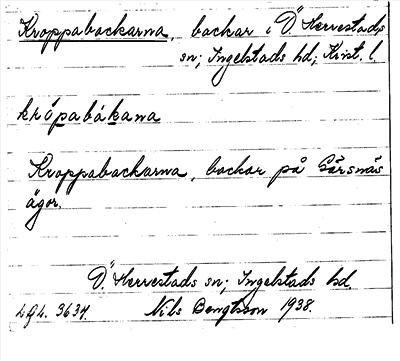 Kroppabackarna, backar i Ö. Herrestads
sn; Ingelstads hd; Krist. l.
kròpabákana
Kroppabackarna, backar på Gärsnäs
ägor.
Ö. Herrestads sn; Ingelstads hd.
Nils Bengtsson 1938.